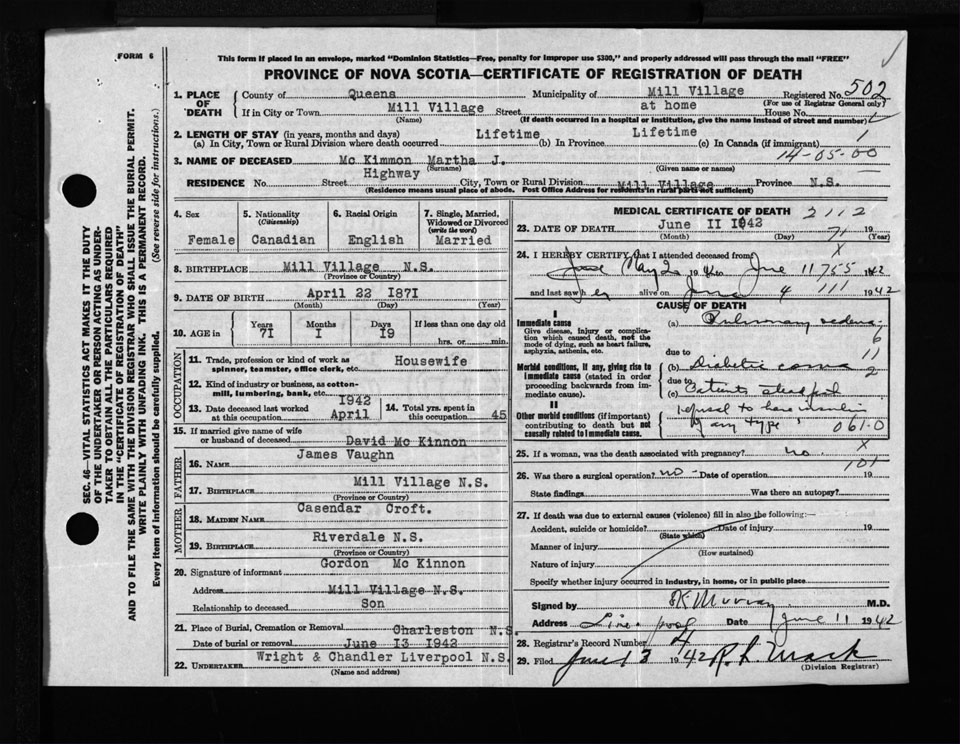 FORM 6
This form if placed in an envelope, marked "Dominion Statistics—Free, penalty for improper use $300," and properly addressed will pass through the mail "FREE"
PROVINCE OF NOVA SCOTIA—CERTIFICATE OF REGISTRATION OF DEATH
1. PLACE OF DEATH County of Queens Municipality of Mill Village Registered No. 502
(For use of Registrar General only)
If in City or Town Mill Village Street at home House No.
(Name) (If death occurred in a hospital or institution, give the name instead of street and number)
2. LENGTH OF STAY (in years, months and days)
(a) In City, Town or Rural Division where death occurred Lifetime (b) In Province Lifetime (c) In Canada (if immigrant) 1
14-05-00
3. NAME OF DECEASED Mc Kimmon Martha J.
(Surname) (Given name or names)
RESIDENCE No. Street Highway City, Town or Rural Division Mill Village Province N.S.
(Residence means usual place of abode. Post Office Address for residents in rural parts not sufficient)
4. Sex Female
5. Nationality (Citizenship) Canadian
6. Racial Origin English
7. Single, Married, Widowed or Divorced (write the word) Married
8. BIRTHPLACE Mill Village N.S.
(Province or Country)
9. DATE OF BIRTH April 22 I87I
(Month) (Day) (Year)
10. AGE in Years 7I Months I Days I9 If less than one day old hrs. or min.
OCCUPATION
11. Trade, profession or kind of work as spinner, teamster, office clerk, etc. Housewife
12. Kind of industry or business, as cotton-mill, lumbering, bank, etc.
13. Date deceased last worked at this occupation I942 April
14. Total yrs. spent in this occupation 45
15. If married give name of wife or husband of deceased David Mc Kinnon
FATHER
16. NAME James Vaughn
17. BIRTHPLACE Mill Village N.S.
(Province or Country)
MOTHER
18. MAIDEN NAME Casendar Croft.
19. BIRTHPLACE Riverdale N.S.
(Province or Country)
20. Signature of informant Gordon Mc Kinnon
Address Mill Village N.S.
Relationship to deceased Son
21. Place of Burial, Cremation or Removal Charleston N.S.
Date of burial or removal June I3 I942
22. UNDERTAKER Wright & Chandler Liverpool N.S.
(Name and address)
MEDICAL CERTIFICATE OF DEATH 2112
23. DATE OF DEATH June II I942 71 19
(Month) (Day) (Year)
24. I HEREBY CERTIFY that I attended deceased from x
May 19 to June 11 755 1942
and last saw her alive on June 4 111 1942
CAUSE OF DEATH
I
Immediate cause
Give disease, injury or complication which caused death, not the mode of dying, such as heart failure, asphyxia, asthenia, etc.
(a) Pulmonary oedema
6
due to 11
Morbid conditions, if any, giving rise to immediate cause (stated in order proceeding backwards from immediate cause).
(b) Diabetic coma 2
due to
(c) Patients
refusal to have insulin
II
Other morbid conditions (if important) contributing to death but not causally related to immediate cause.
of any type 061-0
25. If a woman, was the death associated with pregnancy? no x
101
26. Was there a surgical operation? no Date of operation 19
State findings Was there an autopsy?
27. If death was due to external causes (violence) fill in also the following:—
Accident, suicide or homicide? Date of injury 19
(State which)
Manner of injury
(How sustained)
Nature of injury
Specify whether injury occurred in industry, in home, or in public place
Signed by Murray M.D.
Address Liverpool Date June 11 1942
28. Registrar's Record Number 4
29. Filed June 13 1942 Mack
(Division Registrar)
SEC. 46—VITAL STATISTICS ACT MAKES IT THE DUTY
OF THE UNDERTAKER OR PERSON ACTING AS UNDER-
TAKER TO OBTAIN ALL THE PARTICULARS REQUIRED
IN THE "CERTIFICATE OF REGISTRATION OF DEATH"
AND TO FILE THE SAME WITH THE DIVISION REGISTRAR WHO SHALL ISSUE THE BURIAL PERMIT.
WRITE PLAINLY WITH UNFADING INK. THIS IS A PERMANENT RECORD.
Every item of information should be carefully supplied. (See reverse side for instructions.)